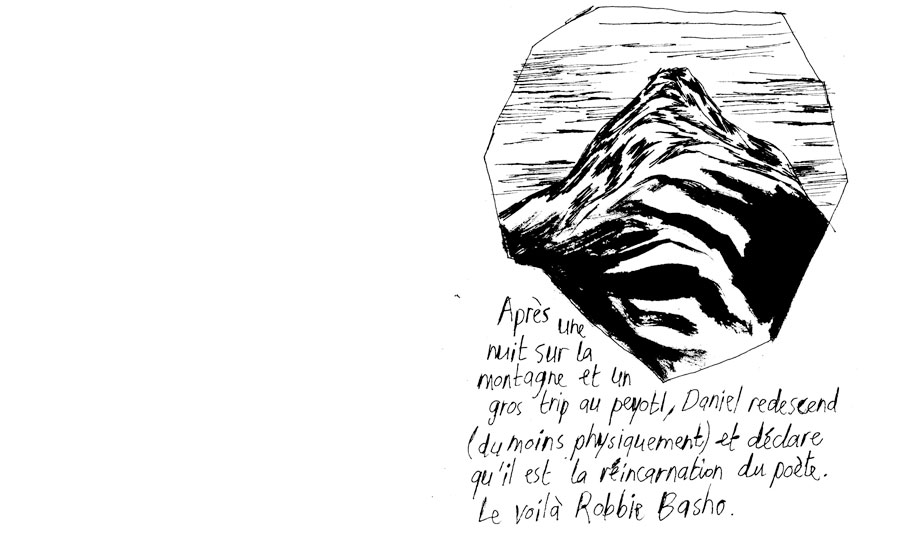 Après une
nuit sur la
montagne et un
gros trip au peyotl, Daniel redescend
(du moins physiquement) et déclare
qu'il est la réincarnation du poète.
Le voilà Robbie Basho.